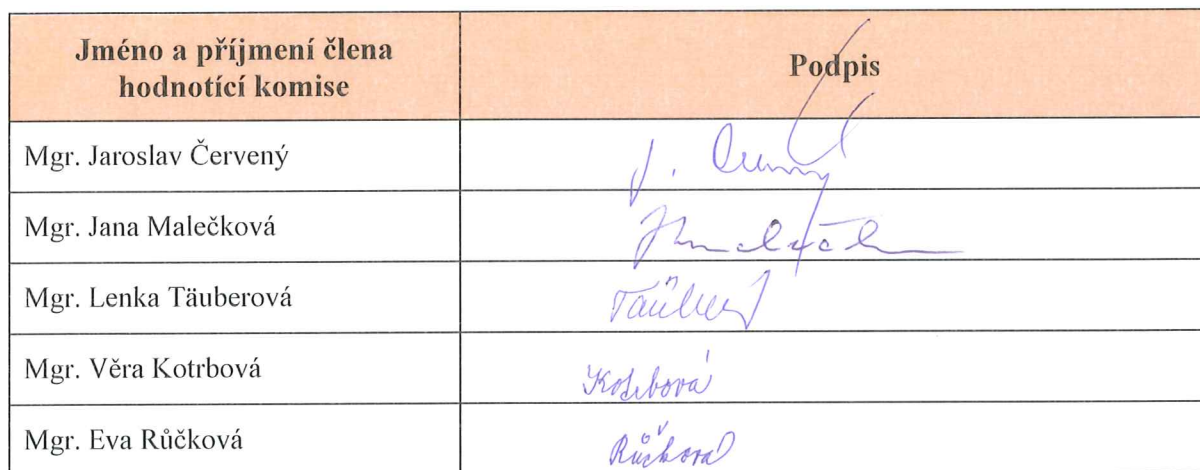 Jméno a příjmení člena
hodnotící komise
Podpis
Mgr. Jaroslav Červený
J.
Mgr. Jana Malečková
Mgr. Lenka Täuberová
Mgr. Věra Kotrbová
Kotrbová
Mgr. Eva Růčková
Růčková